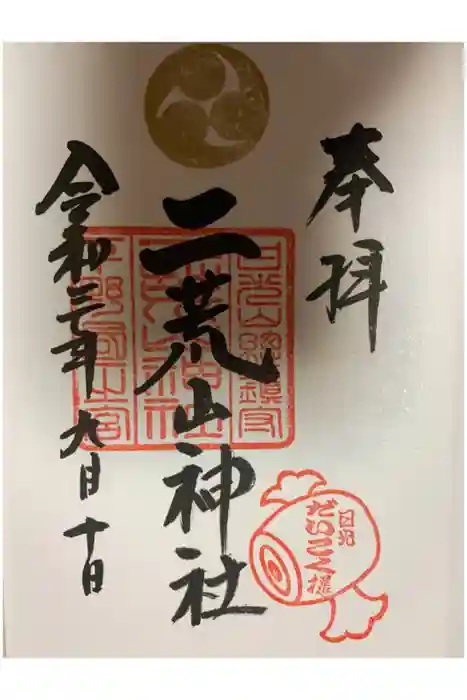 奉拝
日光山總鎮守
二荒山神社
令和三年九月十日
日光
だいこく様